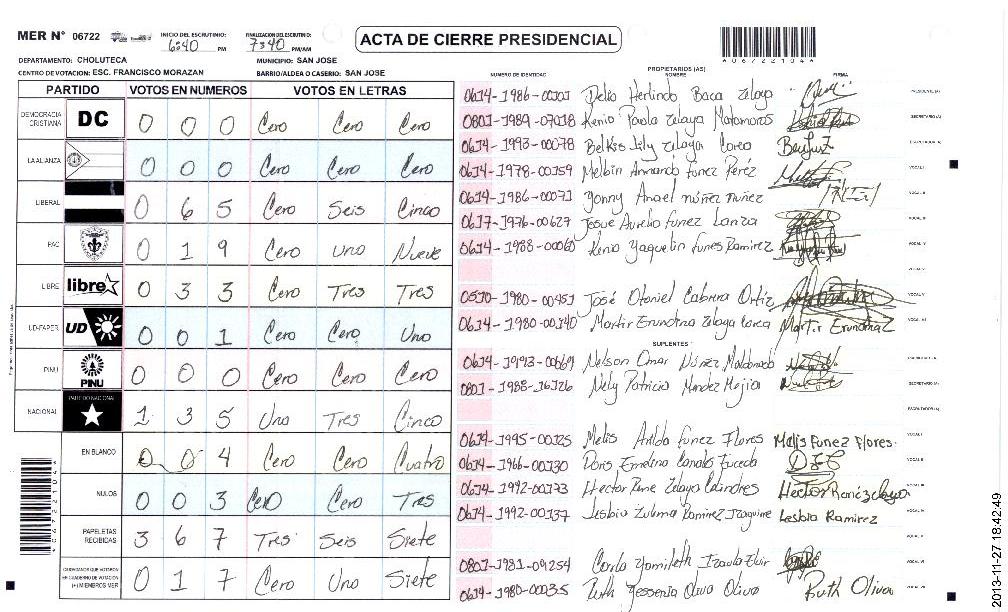 MER N° 06722
INICIO DEL ESCRUTINIO: 6:40 PM
FINALIZACION DEL ESCRUTINIO: 7:40 PM/AM
ACTA DE CIERRE PRESIDENCIAL
*06722104*
DEPARTAMENTO: CHOLUTECA MUNICIPIO: SAN JOSE
CENTRO DE VOTACION: ESC. FRANCISCO MORAZAN BARRIO/ALDEA O CASERIO: SAN JOSE
PARTIDO VOTOS EN NUMEROS VOTOS EN LETRAS
DEMOCRACIA CRISTIANA DC 0 0 0 Cero Cero Cero
LA ALIANZA 0 0 0 Cero Cero Cero
LIBERAL 0 6 5 Cero Seis Cinco
PAC 0 1 9 Cero Uno Nueve
LIBRE libre 0 3 3 Cero Tres Tres
UD-FAPER UD 0 0 1 Cero Cero Uno
PINU PINU 0 0 0 Cero Cero Cero
NACIONAL PARTIDO NACIONAL 1 3 5 Uno Tres Cinco
EN BLANCO 0 0 4 Cero Cero Cuatro
NULOS 0 0 3 Cero Cero Tres
PAPELETAS RECIBIDAS 3 6 7 Tres Seis Siete
CIUDADANOS QUE VOTARON EN CUADERNO DE VOTACION (+) MIEMBROS MER 0 1 7 Cero Uno Siete
PROPIETARIOS (AS)
NUMERO DE IDENTIDAD NOMBRE FIRMA
0614-1986-00101 Delio Herlindo Baca Zelaya PRESIDENTE (A)
0801-1989-07018 Kenia Paola Zelaya Matamoros SECRETARIO (A)
0614-1993-00078 Belkis Lily Zelaya Corea ESCRUTADOR (A)
0614-1978-00159 Melbin Armando Funez Peréz VOCAL I
0614-1986-00071 Yonny Anael núñez nuñez VOCAL II
0617-1976-00627 Josue Aurelio Funez Lanza VOCAL III
0614-1988-00060 Kenia Yaquelin Funes Ramirez VOCAL IV
José Otoniel Cabrera Ortiz
0614-1980-00140 Martir Erundina Zelaya Corea Martir Erundina Z
SUPLENTES
Nelson Omar Núñez Maldonado
0801-1988-16126 Nely Patricia Mendez Mejia SECRETARIO (A)
ESCRUTADOR (A)
0614-1995-00125 Melis Anilda Funez Flores Melis Funez Flores. VOCAL I
0614-1966-00130 Doris Emelina VOCAL II
0614-1992-00173 Hector Rene Zelaya Hector Renézelaya VOCAL III
0614-1992-00137 Lesbia Zulema Ramirez Izaguirre Lesbia Ramirez VOCAL IV
0801-1981-09254 Carla Yamileth
0614-1980-00035 Ruth Yessenia Oliva Oliva Ruth Oliva
*06722104*
2013-11-27 18:42:49